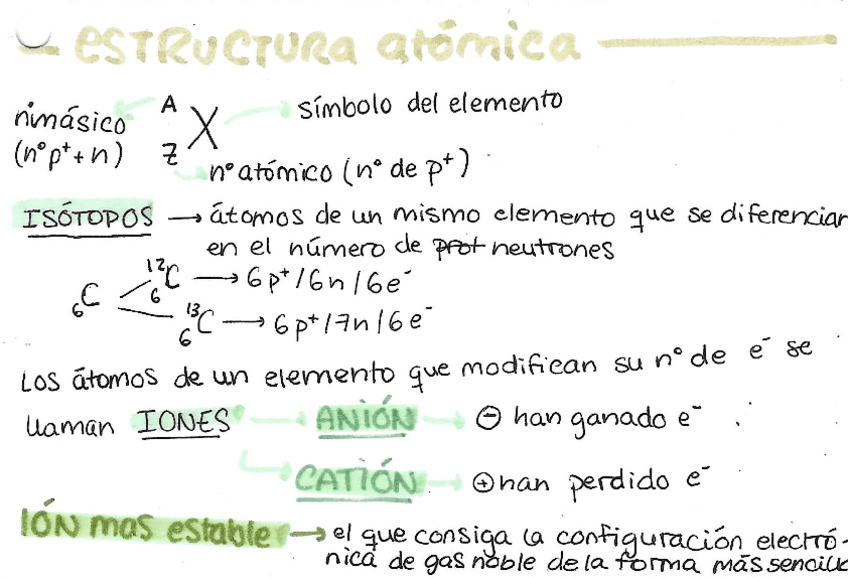 ESTRUCTURA atómica
nºmásico A X símbolo del elemento
(nº p⁺ + n) Z nº atómico (nº de p⁺)
ISÓTOPOS → átomos de un mismo elemento que se diferencian
en el número de prot neutrones
₆C ¹²₆C → 6p⁺/6n/6e⁻
¹³₆C → 6p⁺/7n/6e⁻
Los átomos de un elemento que modifican su nº de e⁻ se
llaman IONES → ANIÓN → ⊖ han ganado e⁻.
→ CATIÓN → ⊕ han perdido e⁻
IÓN mas estable → el que consiga la configuración electró-
nica de gas noble de la forma más sencilla